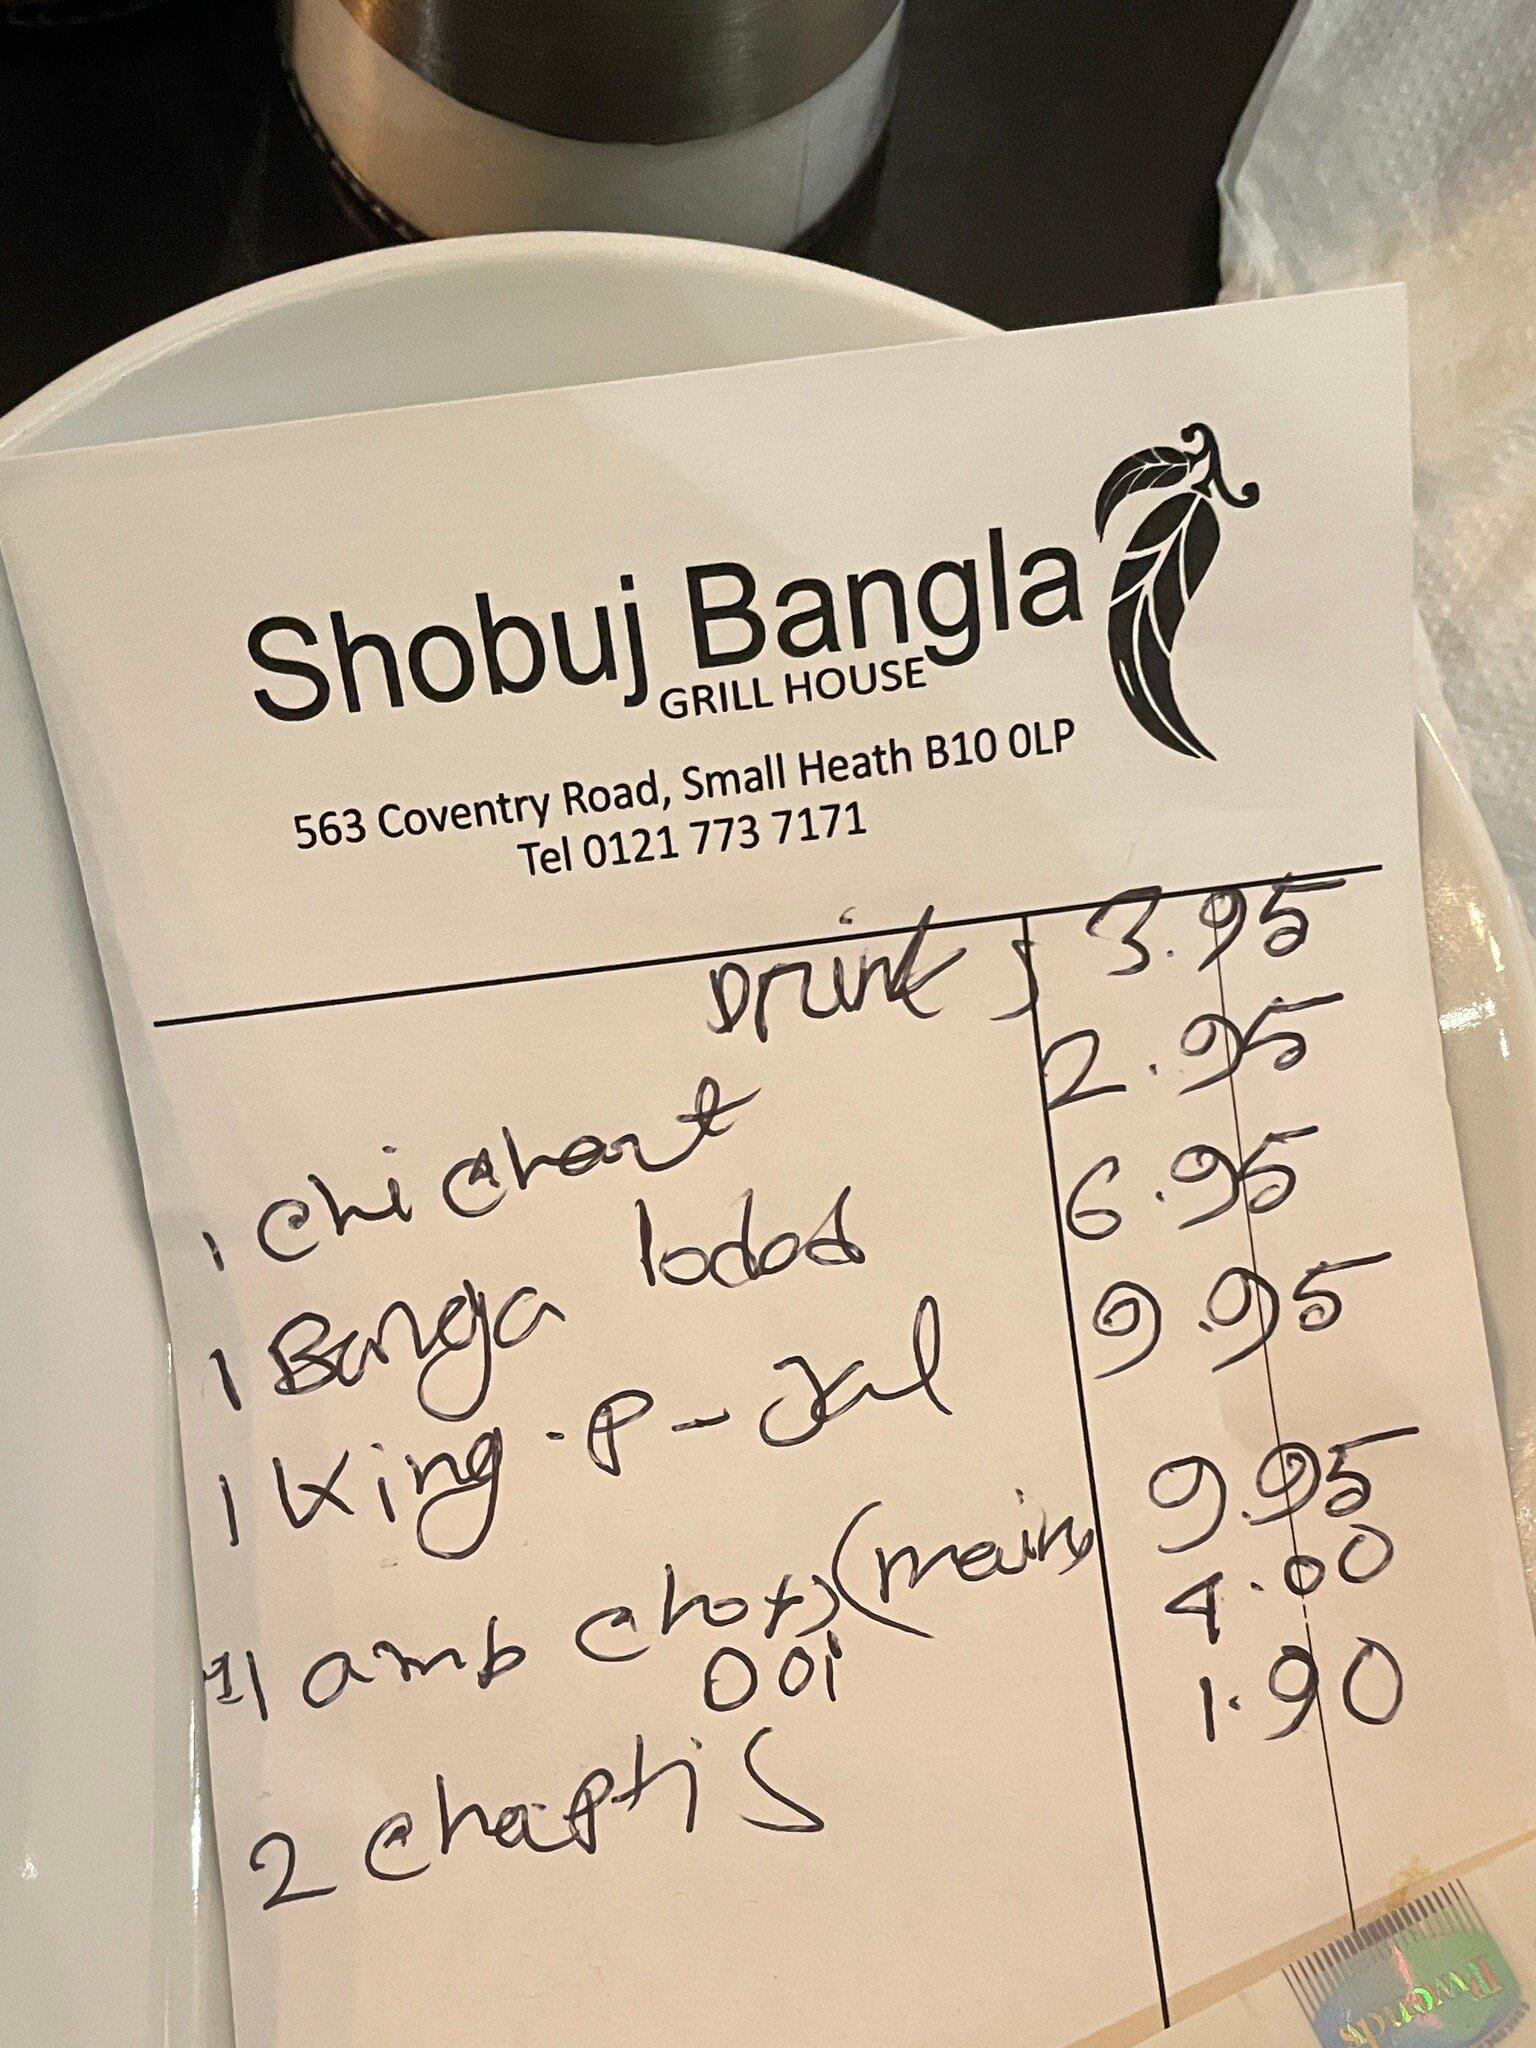 Shobuj Bangla
GRILL HOUSE
563 Coventry Road, Small Heath B10 0LP
Tel 0121 773 7171
Drinks 3.95
1 chi chart 2.95
1 Banga 6.95
1 King - P - Jal 9.95
lamb chops (main 9.95
4.00
2 chaptis 1.90